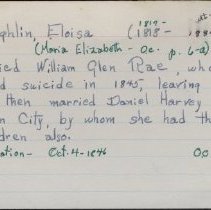 ghlin, Eloisa (1817-
1818-
(Maria Elizabeth - Oc. p. 6-a)
ied William Glen Rae, who
d suicide in 1845, leaving
then married Daniel Harvey
n City, by whom she had th
dren also.
ation - Oct. 4 - 1846 Oc